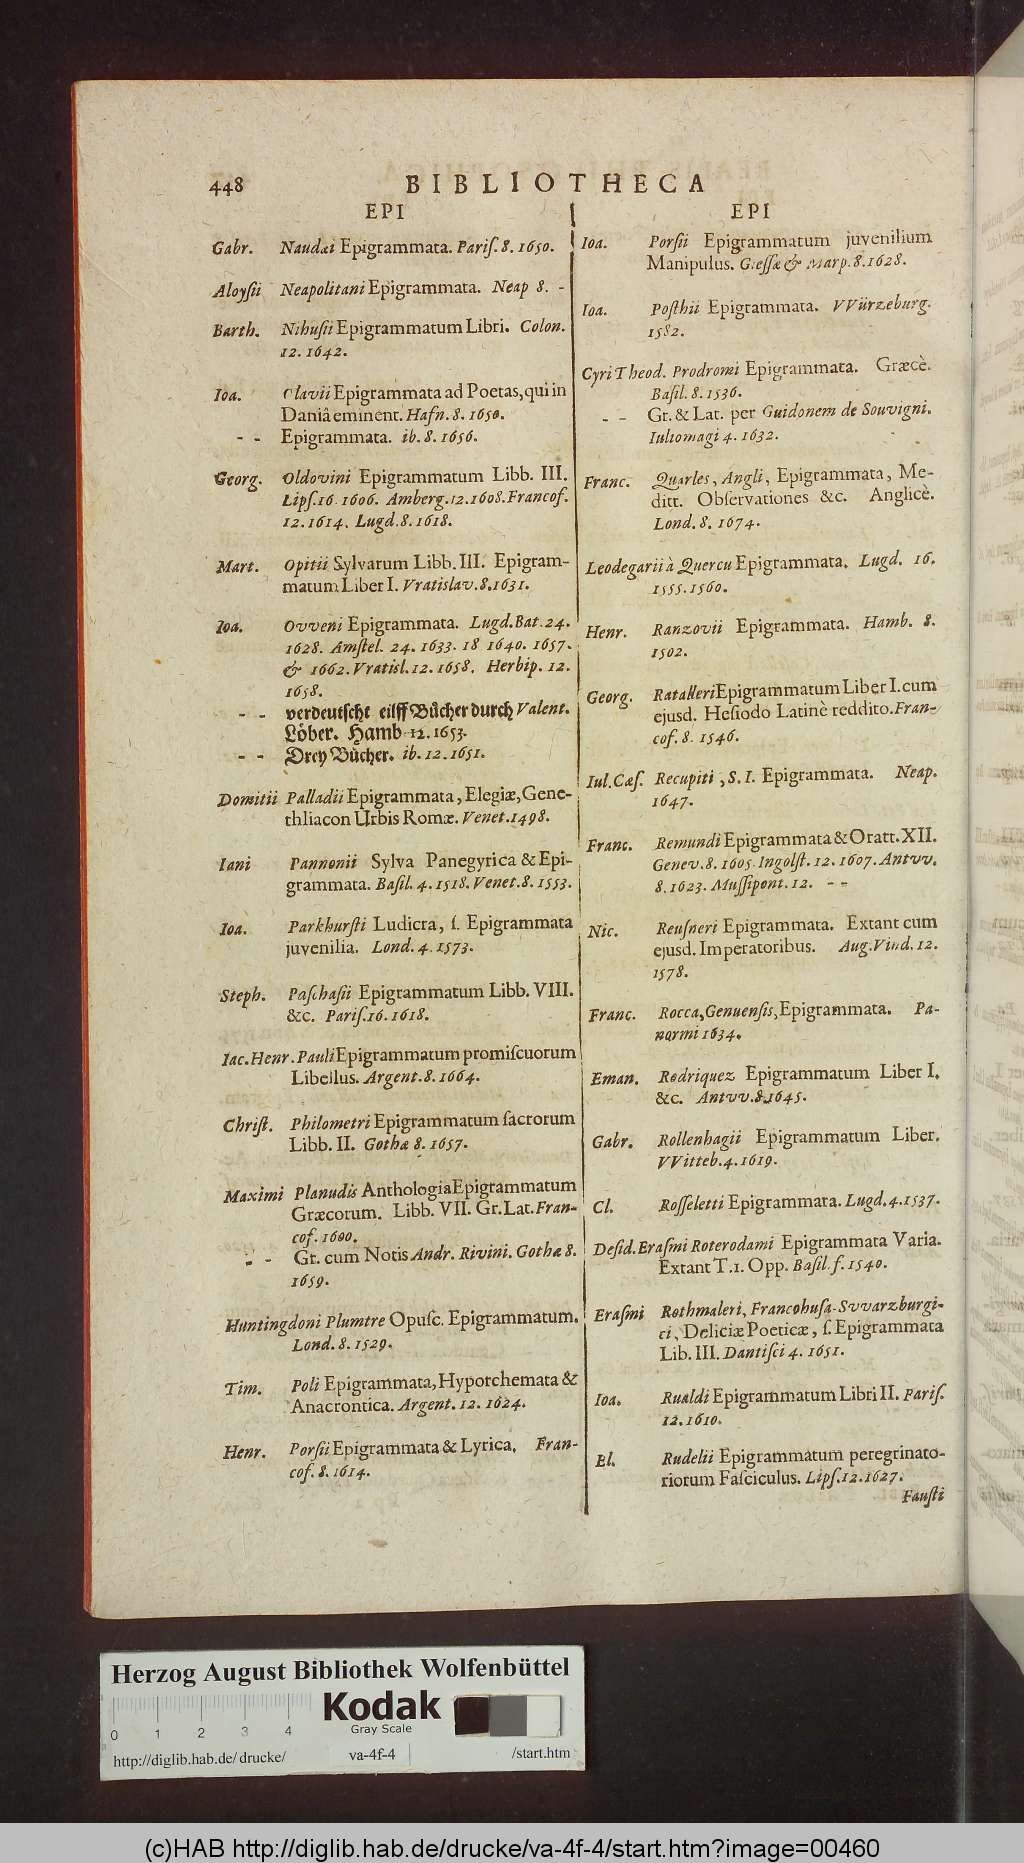 448 BIBLIOTHECA
EPI
Gabr. Naudæi Epigrammata. Pariſ. 8. 1650.
Aloyſii Neapolitani Epigrammata. Neap 8. -
Barth. Nihuſii Epigrammatum Libri. Colon.
12. 1642.
Ioa. Olavii Epigrammata ad Poetas, qui in
Daniâ eminent. Hafn. 8. 1650.
- - Epigrammata. ib. 8. 1656.
Georg. Oldovini Epigrammatum Libb. III.
Lipſ. 16. 1606. Amberg. 12. 1608. Francof.
12. 1614. Lugd. 8. 1618.
Mart. Opitii Sylvarum Libb. III. Epigram-
matum Liber I. Vratislav. 8. 1631.
Ioa. Ovveni Epigrammata. Lugd. Bat. 24.
1628. Amſtel. 24. 1633. 18 1640. 1657.
& 1662. Vratisl. 12. 1658. Herbip. 12.
1658.
- - verdeutſcht eilff Bücher durch Valent.
Löber. Hamb 12. 1653.
- - Drey Bücher. ib. 12. 1651.
Domitii Palladii Epigrammata, Elegiæ, Gene-
thliacon Urbis Romæ. Venet. 1498.
Iani Pannonii Sylva Panegyrica & Epi-
grammata. Baſil. 4. 1518. Venet. 8. 1553.
Ioa. Parkhurſti Ludicra, ſ. Epigrammata
juvenilia. Lond. 4. 1573.
Steph. Paſchaſii Epigrammatum Libb. VIII.
&c. Pariſ. 16. 1618.
Iac. Henr. Pauli Epigrammatum promiſcuorum
Libellus. Argent. 8. 1664.
Chriſt. Philometri Epigrammatum ſacrorum
Libb. II. Gothæ 8. 1657.
Maximi Planudis Anthologia Epigrammatum
Græcorum. Libb. VII. Gr. Lat. Fran-
cof. 1600.
- - Gr. cum Notis Andr. Rivini. Gothæ 8.
1659.
Huntingdoni Plumtre Opuſc. Epigrammatum.
Lond. 8. 1529.
Tim. Poli Epigrammata, Hyporchemata &
Anacrontica. Argent. 12. 1624.
Henr. Porſii Epigrammata & Lyrica. Fran-
cof. 8. 1614.
EPI
Ioa. Porſii Epigrammatum juvenilium
Manipulus. Gieſſæ & Marp. 8. 1628.
Ioa. Poſthii Epigrammata. VVürzeburg.
1582.
Cyri Theod. Prodromi Epigrammata. Græcè.
Baſil. 8. 1536.
- - Gr. & Lat. per Guidonem de Souvigni.
Iuliomagi 4. 1632.
Franc. Quarles, Angli, Epigrammata, Me-
ditt. Obſervationes &c. Anglicè.
Lond. 8. 1674.
Leodegarii à Quercu Epigrammata. Lugd. 16.
1555. 1560.
Henr. Ranzovii Epigrammata. Hamb. 8.
1502.
Georg. Ratalleri Epigrammatum Liber I. cum
ejusd. Heſiodo Latinè reddito. Fran-
cof. 8. 1546.
Iul. Cæſ. Recupiti, S. I. Epigrammata. Neap.
1647.
Franc. Remundi Epigrammata & Oratt. XII.
Genev. 8. 1605. Ingolſt. 12. 1607. Antvv.
8. 1623. Muſſipont. 12. - -
Nic. Reuſneri Epigrammata. Extant cum
ejusd. Imperatoribus. Aug. Vind. 12.
1578.
Franc. Rocca, Genuenſis, Epigrammata. Pa-
normi 1634.
Eman. Rodriquez Epigrammatum Liber I.
&c. Antvv. 8. 1645.
Gabr. Rollenhagii Epigrammatum Liber.
VVitteb. 4. 1619.
Cl. Roſſeletti Epigrammata. Lugd. 4. 1537.
Deſid. Eraſmi Roterodami Epigrammata Varia.
Extant T. 1. Opp. Baſil. f. 1540.
Eraſmi Rothmaleri, Francohuſa-Svvarzburgi-
ci, Deliciæ Poeticæ, ſ. Epigrammata
Lib. III. Dantiſci 4. 1651.
Ioa. Rualdi Epigrammatum Libri II. Pariſ.
12. 1610.
El. Rudelii Epigrammatum peregrinato-
riorum Faſciculus. Lipſ. 12. 1627.
Fauſti
Herzog August Bibliothek Wolfenbüttel
Kodak
Gray Scale
0 1 2 3 4
http://diglib.hab.de/drucke/ va-4f-4 /start.htm
(c)HAB http://diglib.hab.de/drucke/va-4f-4/start.htm?image=00460